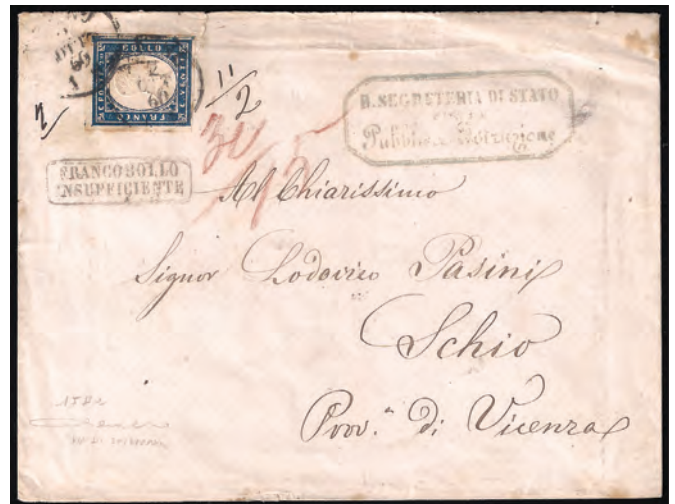 BOLLO
FRANCO
60
11/2
2
30
15
R. SEGRETERIA DI STATO
Pubblica Istruzione
FRANCOBOLLO
INSUFFICIENTE
Al Chiarissimo
Signor Lodovico Pasini
Schio
Prov.ª di Vicenza